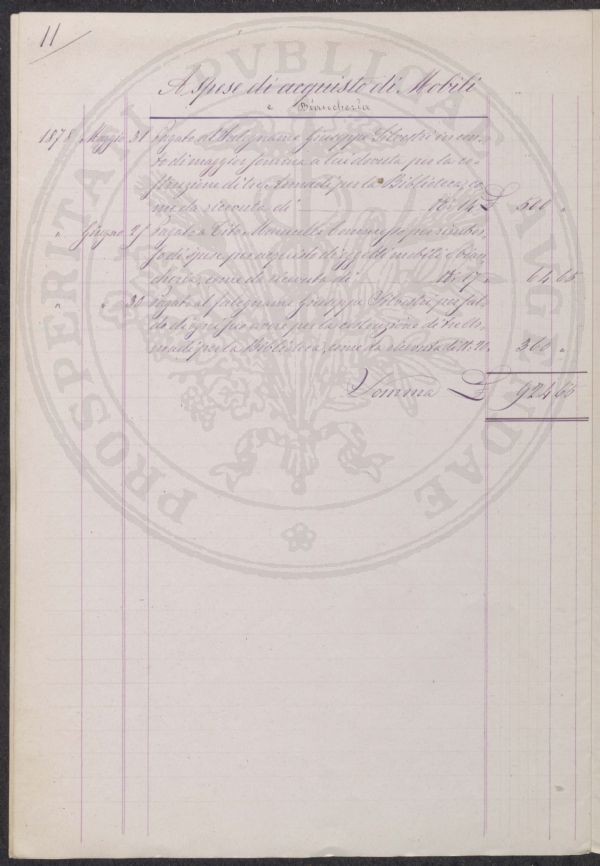 11
A spese di acquisto di Mobili
e Biancheria
1878 Maggio 31 Pagato al falegname Giuseppe Silvestri in con-
to di maggior somma a lui dovuta per la co-
struzione di tre Armadi per la Biblioteca, co-
me da ricevuta di N. 14 L 500 "
" Giugno 27 Pagato a Tito per rimbor-
so di spese per acquisto di oggetti mobili e bian-
cheria, come da ricevuta di N. 17 " 64 65
" " 30 Pagato al falegname Giuseppe Silvestri per sal-
do di ogni suo avere per la costruzione di tre Ar-
madi per la Biblioteca, come da ricevuta di N. " 360 "
Somma L 924 65
PVBLICAE
PROSPERITATI AVGENDAE